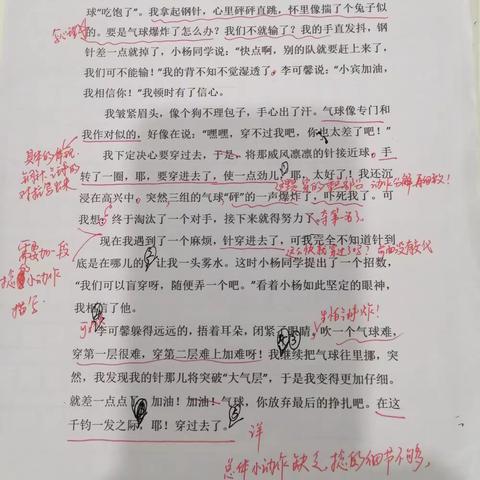 球“吃饱了”。我拿起钢针，心里砰砰直跳，怀里像揣了个兔子似
的。要是气球爆炸了怎么办？我们不就输了？我的手直发抖，钢
针差一点就掉了，小杨同学说：“快点啊，别的队就要赶上来了，
我们可不能输！”我的背不知不觉湿透了。李可馨说：“小宾加油，
我相信你！”我顿时有了信心。
我皱紧眉头，像个狗不理包子，手心出了汗。气球像专门和
我作对似的，好像在说：“嘿嘿，穿不过我吧，你也太差了吧！”
我下定决心要穿过去，于是，将那威风凛凛的针接近球。手
转了一圈，耶，要穿进去了，使一点劲儿，耶，太好了！我还沉
浸在高兴中。突然三组的气球“砰”的一声爆炸了，吓死我了。可
我想：终于淘汰了一个对手，接下来就得努力了
夺第一名了
现在我遇到了一个麻烦，针穿进去了，可我完全不知道针到
底是在哪儿的，让我一头雾水。这时小杨同学提出了一个招数，
“我们可以盲穿呀，随便弄一个吧。”看着小杨如此坚定的眼神，
我相信了他。
李可馨躲得远远的，捂着耳朵，闭紧了眼睛。吹一个气球难，
穿第一层很难，穿第二层难上加难呀！我继续把气球往里挪，突
然，我发现我的针那儿将突破“大气层”，于是我变得更加仔细。
就差一点点了，加油！加油！气球，你放弃最后的挣扎吧。在这
千钧一发之际，耶！穿过去了。
详
需要加一段
捻的小动作
描写
总体小动作缺乏，捻的细节不够，